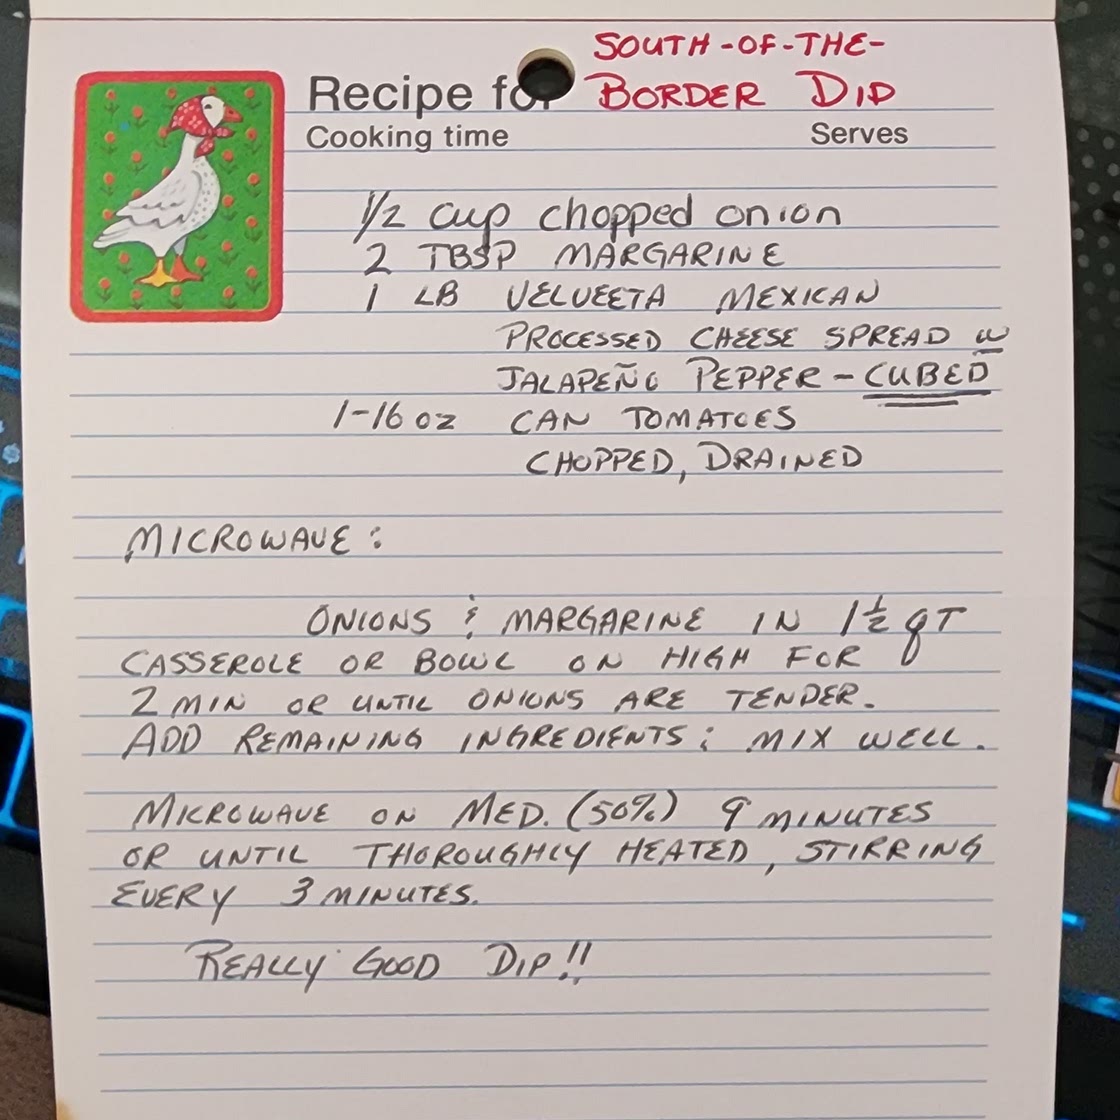 SOUTH-OF-THE-
Recipe for BORDER DIP
Cooking time Serves
1/2 cup chopped onion
2 TBSP MARGARINE
1 LB VELVEETA MEXICAN
PROCESSED CHEESE SPREAD W
JALAPEÑO PEPPER - CUBED
1-16 OZ CAN TOMATOES
CHOPPED, DRAINED
MICROWAVE:
ONIONS & MARGARINE IN 1 1/2 QT
CASSEROLE OR BOWL ON HIGH FOR
2 MIN OR UNTIL ONIONS ARE TENDER.
ADD REMAINING INGREDIENTS; MIX WELL.
MICROWAVE ON MED. (50%) 9 MINUTES
OR UNTIL THOROUGHLY HEATED, STIRRING
EVERY 3 MINUTES.
REALLY GOOD DIP!!